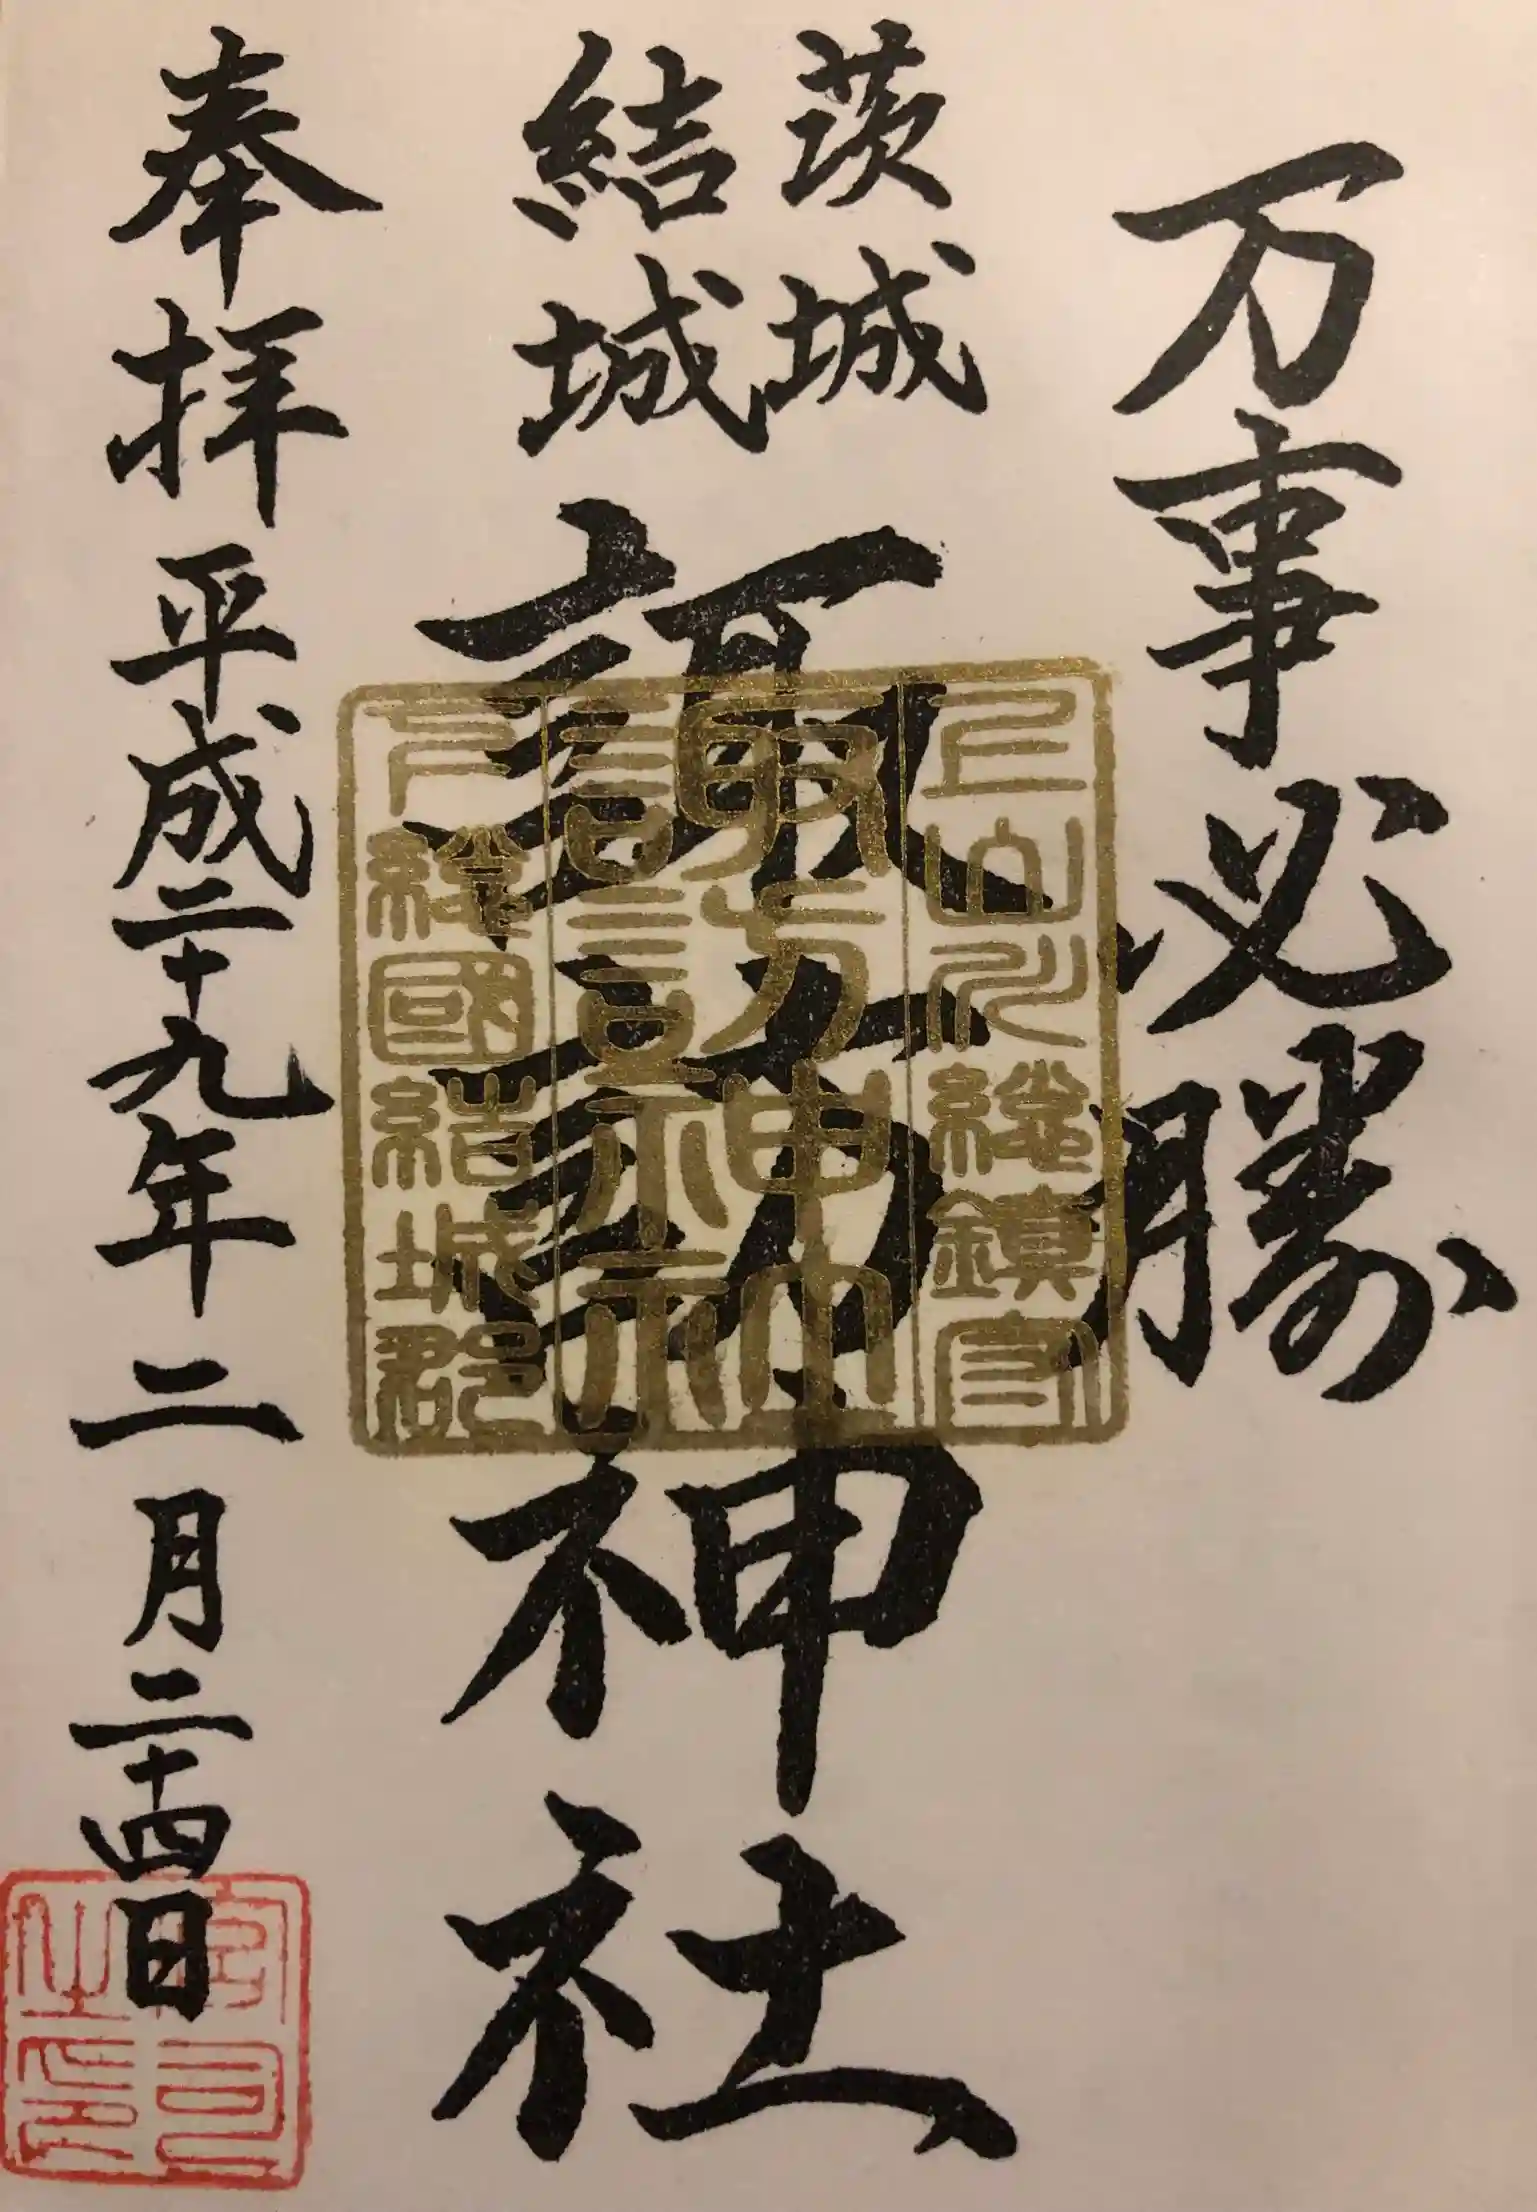 万事必勝
茨城
結城
諏訪神社
奉拝 平成二十九年二月二十四日
上山川総鎮守
諏訪神社
下総國結城郡
宮司
之印